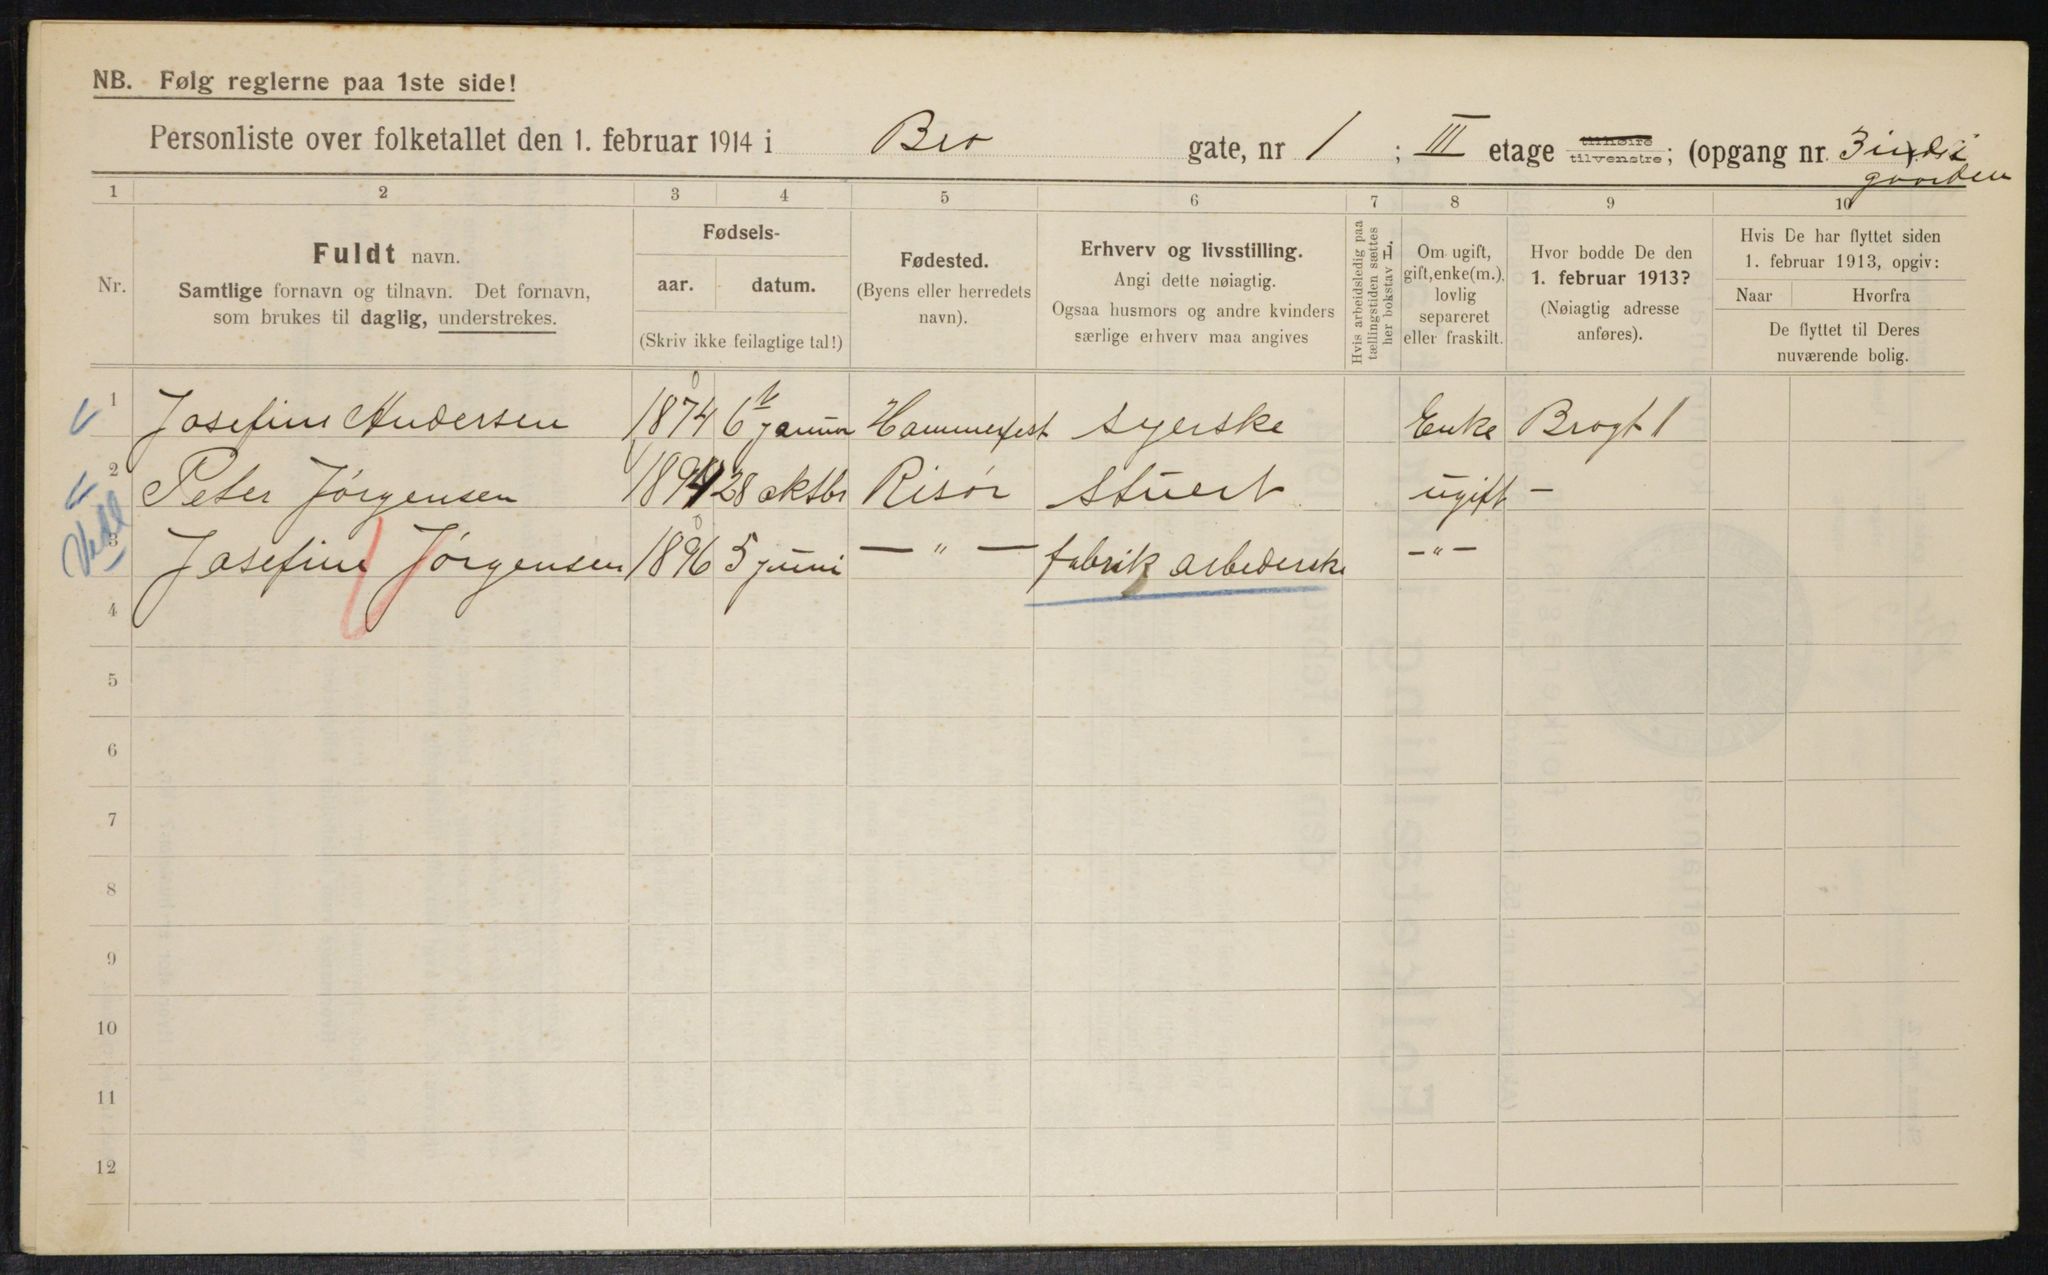 NB. Følg reglerne paa 1ste side!
Personliste over folketallet den 1. februar 1914 i Bro gate, nr 1 ; III etage tilhøire tilvenstre; (opgang nr. 3 i
gaarden
1 2 3 4 5 6 7 8 9 10
Nr.
Fuldt navn.
Samtlige fornavn og tilnavn. Det fornavn,
som brukes til daglig, understrekes.
Fødsels-
aar. datum.
(Skriv ikke feilagtige tal!)
Fødested.
(Byens eller herredets
navn).
Erhverv og livsstilling.
Angi dette nøiagtig.
Ogsaa husmors og andre kvinders
særlige erhverv maa angives
Hvis arbeidsledig paa
tællingstiden sættes
her bokstav L.
Om ugift,
gift, enke(m.),
lovlig
separeret
eller fraskilt.
Hvor bodde De den
1. februar 1913?
(Nøiagtig adresse
anføres).
Hvis De har flyttet siden
1. februar 1913, opgiv:
Naar Hvorfra
De flyttet til Deres
nuværende bolig.
1 Josefine Andersen 1874 6te januar Hammerfest syerske Enke Brogt 1
2 Peter Jørgensen 1894 28 oktbr Risør Stuert ugift —
3 Josefine Jørgensen 1896 5 juni — " — fabrik arbederske — " —
4
5
6
7
8
9
10
11
12